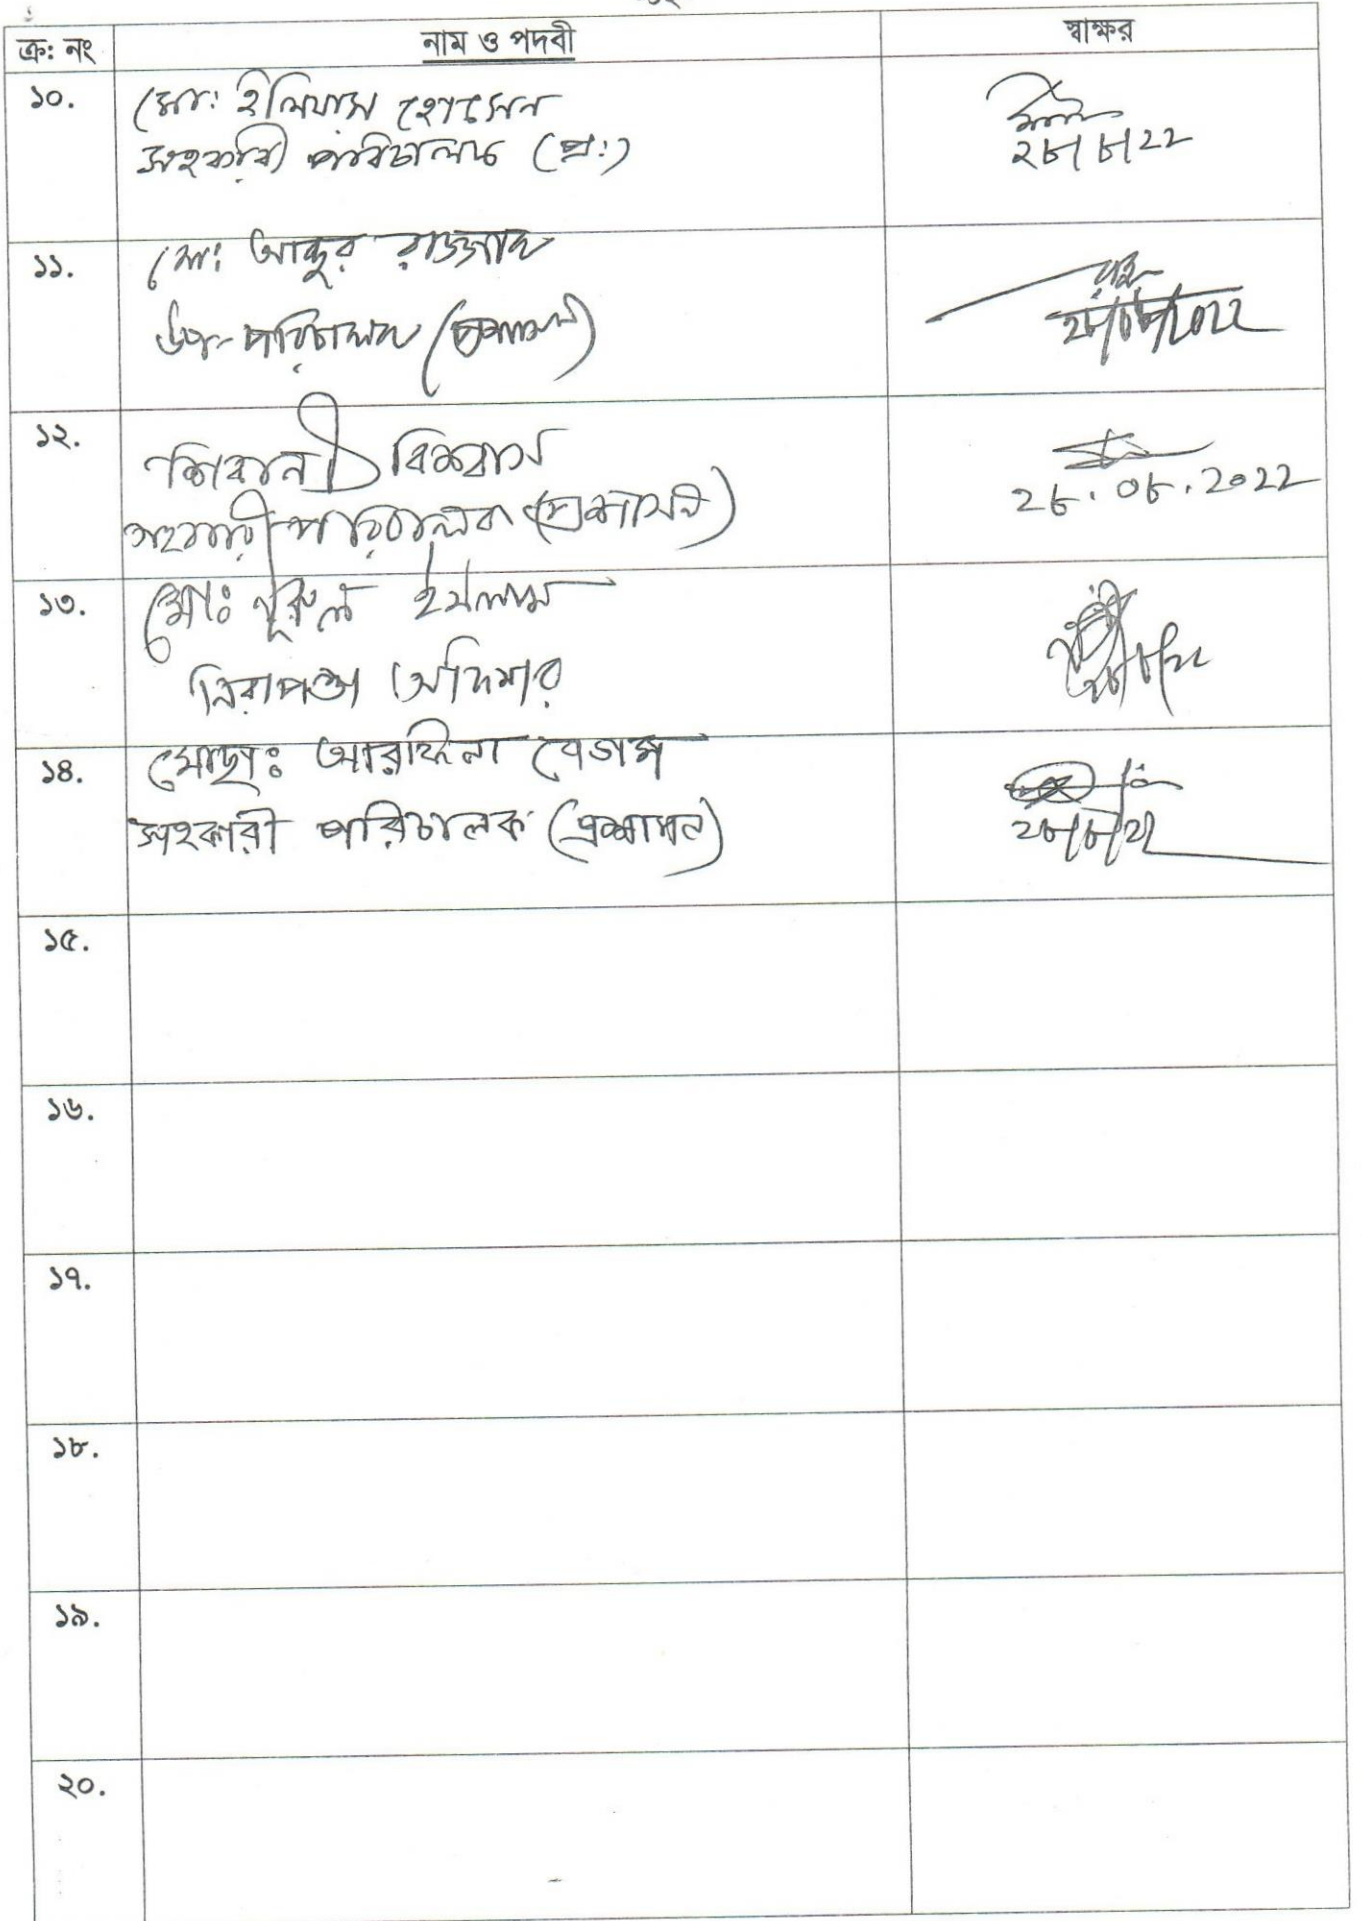 ক্র: নং নাম ও পদবী স্বাক্ষর
১০. মো: ইলিয়াস হোসেন
সহকারী পরিচালক (প্র:)
২৮/৮/২২
১১. মো: আব্দুর রাজ্জাক
উপ-পরিচালক (প্রশাসন)
২৮/০৮/২০২২
১২. শিবানী বিশ্বাস
সহকারী পরিচালক (প্রশাসন)
২৮.০৮.২০২২
১৩. মোঃ নূরুল ইসলাম
নিরাপত্তা অফিসার
২৮/৮/২২
১৪. মোছাঃ আরফিনা বেগম
সহকারী পরিচালক (প্রশাসন)
২৮/৮/২২
১৫.
১৬.
১৭.
১৮.
১৯.
২০.